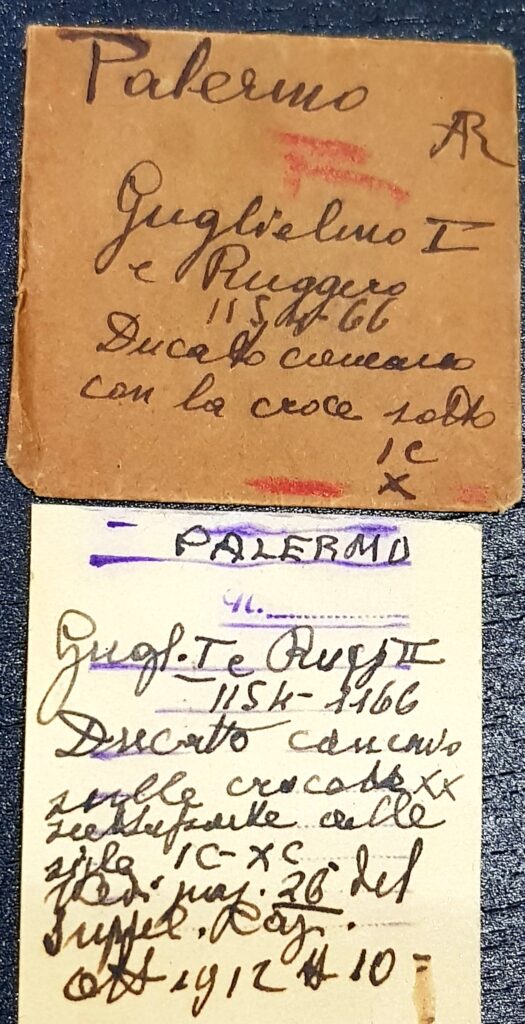 Palermo
AR
Guglielmo I
e Ruggero
1154-66
Ducato concavo
con la croce sotto
IC
X
PALERMO
N.
Gugl. I e Rugg II
1154-1166
Ducato concavo
sulla XX
alle
IC-XC
Vedi pag. 26 del
Suppl. Rag.
Ott 1912 # 10=